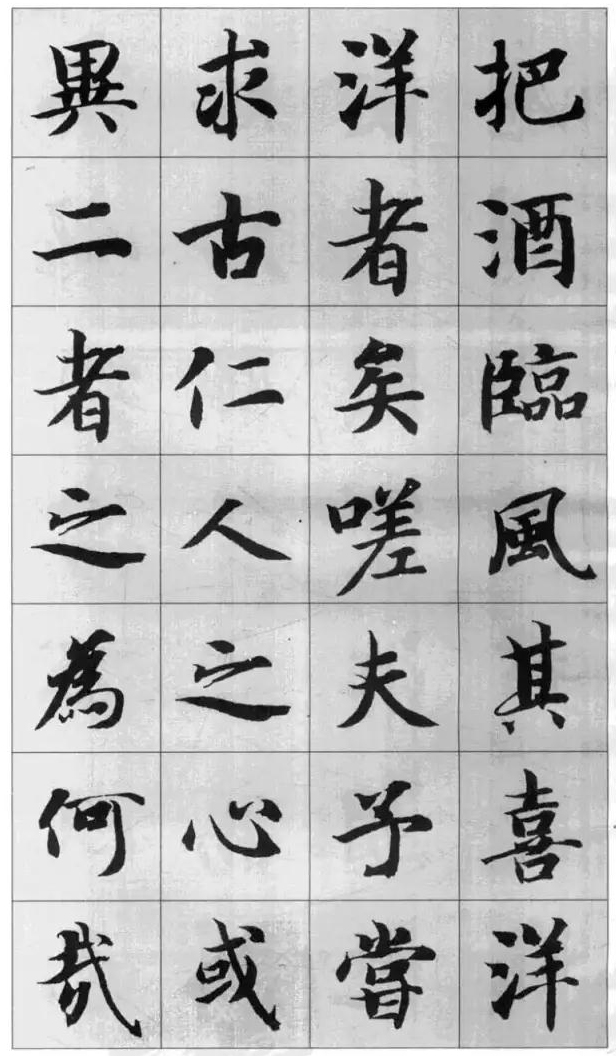 把酒臨風其喜洋
洋者矣嗟夫予嘗
求古仁人之心或
異二者之為何哉